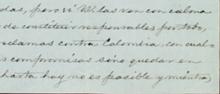 das, pero si Uds. las ven con calma
de constituir responsables por todo,
reclamos contra Colombia, con cuales
compromisos sino quedar en
hasta hoy no es posible y mientras